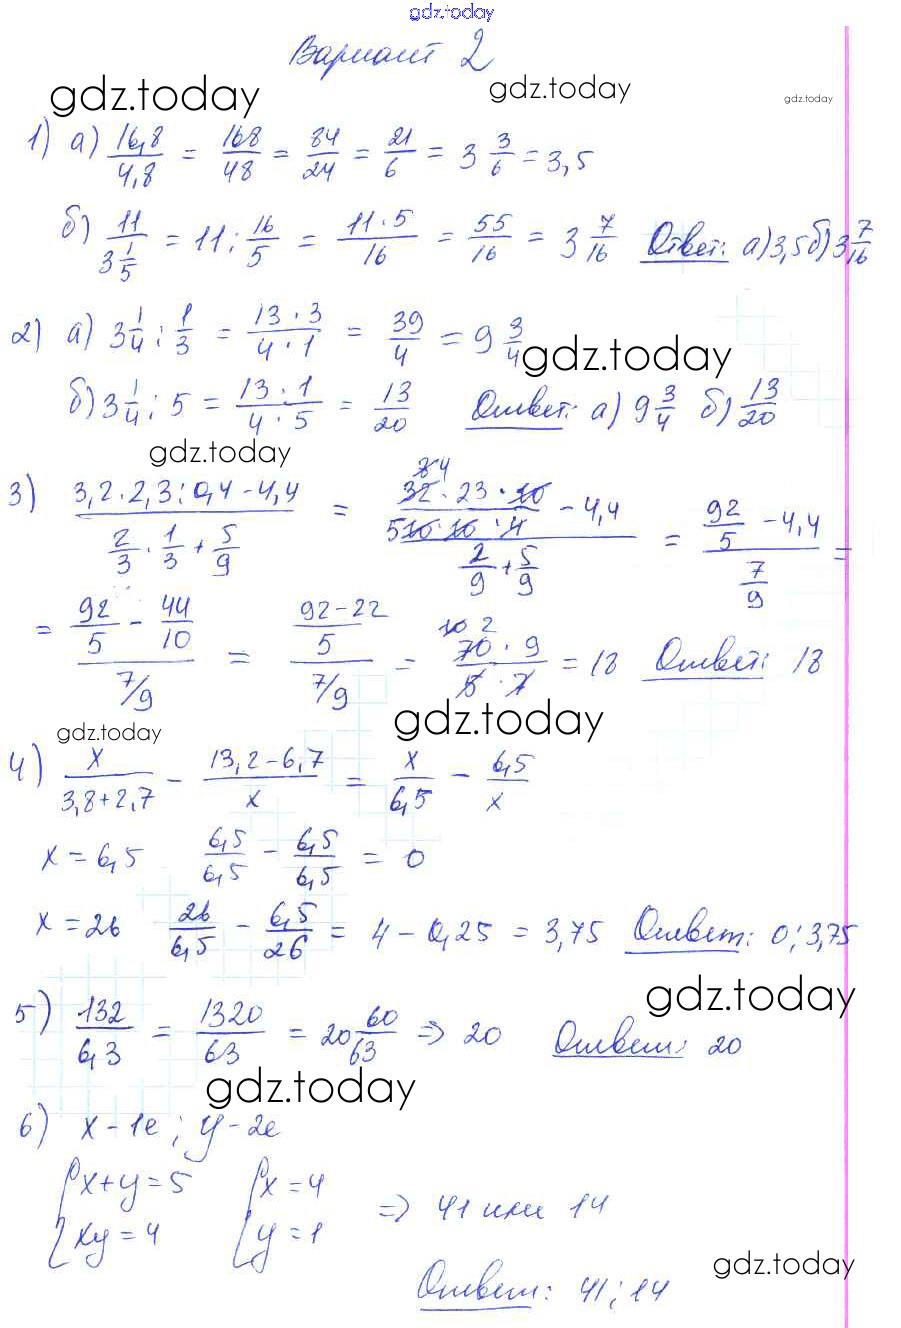 gdz.today
Вариант 2
gdz.today gdz.today gdz.today
1) а) 16,8/4,8 = 168/48 = 84/24 = 21/6 = 3 3/6 = 3,5
б) 11/(3 1/5) = 11 : 16/5 = 11·5/16 = 55/16 = 3 7/16 Ответ: а) 3,5 б) 3 7/16
2) а) 3 1/4 : 1/3 = 13·3/4·1 = 39/4 = 9 3/4
gdz.today
б) 3 1/4 : 5 = 13·1/4·5 = 13/20 Ответ: а) 9 3/4 б) 13/20
gdz.today
3) (3,2·2,3:0,4-4,4)/(2/3·1/3+5/9) = (32·23·10/10·10·4 - 4,4)/(2/9+5/9) = (92/5 - 4,4)/(7/9) =
= (92/5 - 44/10)/(7/9) = ((92-22)/5)/(7/9) = 70·9/5·7 = 18 Ответ: 18
gdz.today gdz.today
4) x/(3,8+2,7) - (13,2-6,7)/x = x/6,5 - 6,5/x
x = 6,5 6,5/6,5 - 6,5/6,5 = 0
x = 26 26/6,5 - 6,5/26 = 4 - 0,25 = 3,75 Ответ: 0; 3,75
gdz.today
5) 132/6,3 = 1320/63 = 20 60/63 => 20 Ответ: 20
gdz.today
6) x - 1е; y - 2е
{x+y=5 {x=4
{xy=4 {y=1 => 41 или 14
gdz.today
Ответ: 41; 14